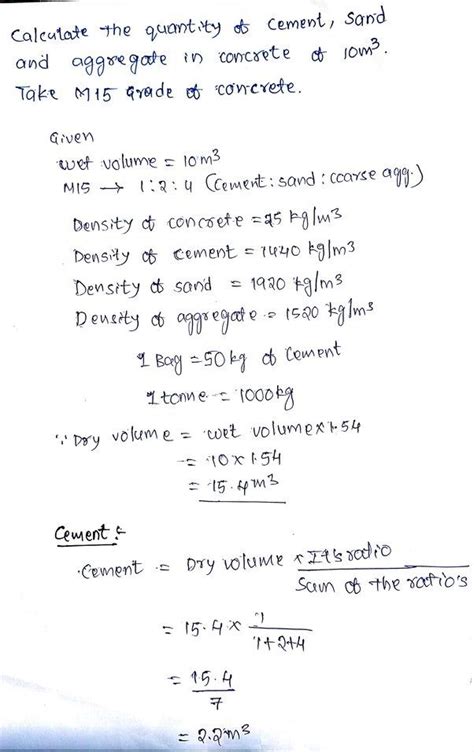 Calculate the quantity of cement, sand
and aggregate in concrete of 10m³.
Take M15 Grade of concrete.
Given
wet volume = 10m³
M15 → 1:2:4 (cement: sand: coarse agg.)
Density of concrete = 25 kg/m³
Density of cement = 1440 kg/m³
Density of sand = 1920 kg/m³
Density of aggregate = 1520 kg/m³
1 Bag = 50kg of cement
1 tonne = 1000kg
∵ Dry volume = wet volume x 1.54
= 10 x 1.54
= 15.4m³
Cement :-
Cement = Dry volume x It's ratio / Sum of the ratio's
= 15.4 x 1 / 1+2+4
= 15.4 / 7
= 2.2m³